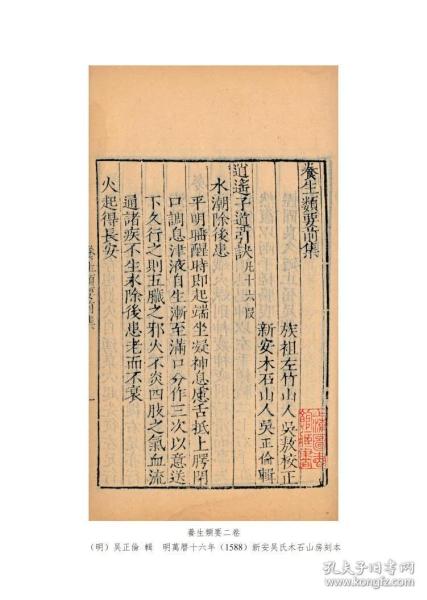 養生類要前集
族祖左竹山人吳敖校正
新安木石山人吳正倫輯
逍遙子導引訣凡十六段
水潮除後患
平明睡醒時即起端坐凝神息慮舌抵上腭閉
口調息津液自生漸至滿口分作三次以意送
下久行之則五臟之邪火不炎四肢之氣血流
通諸疾不生永除後患老而不衰
火起得長安
養生類要前集
上海圖書館藏書
養生類要二卷
(明) 吳正倫 輯 明萬曆十六年 (1588) 新安吳氏木石山房刻本
孔夫子旧书网